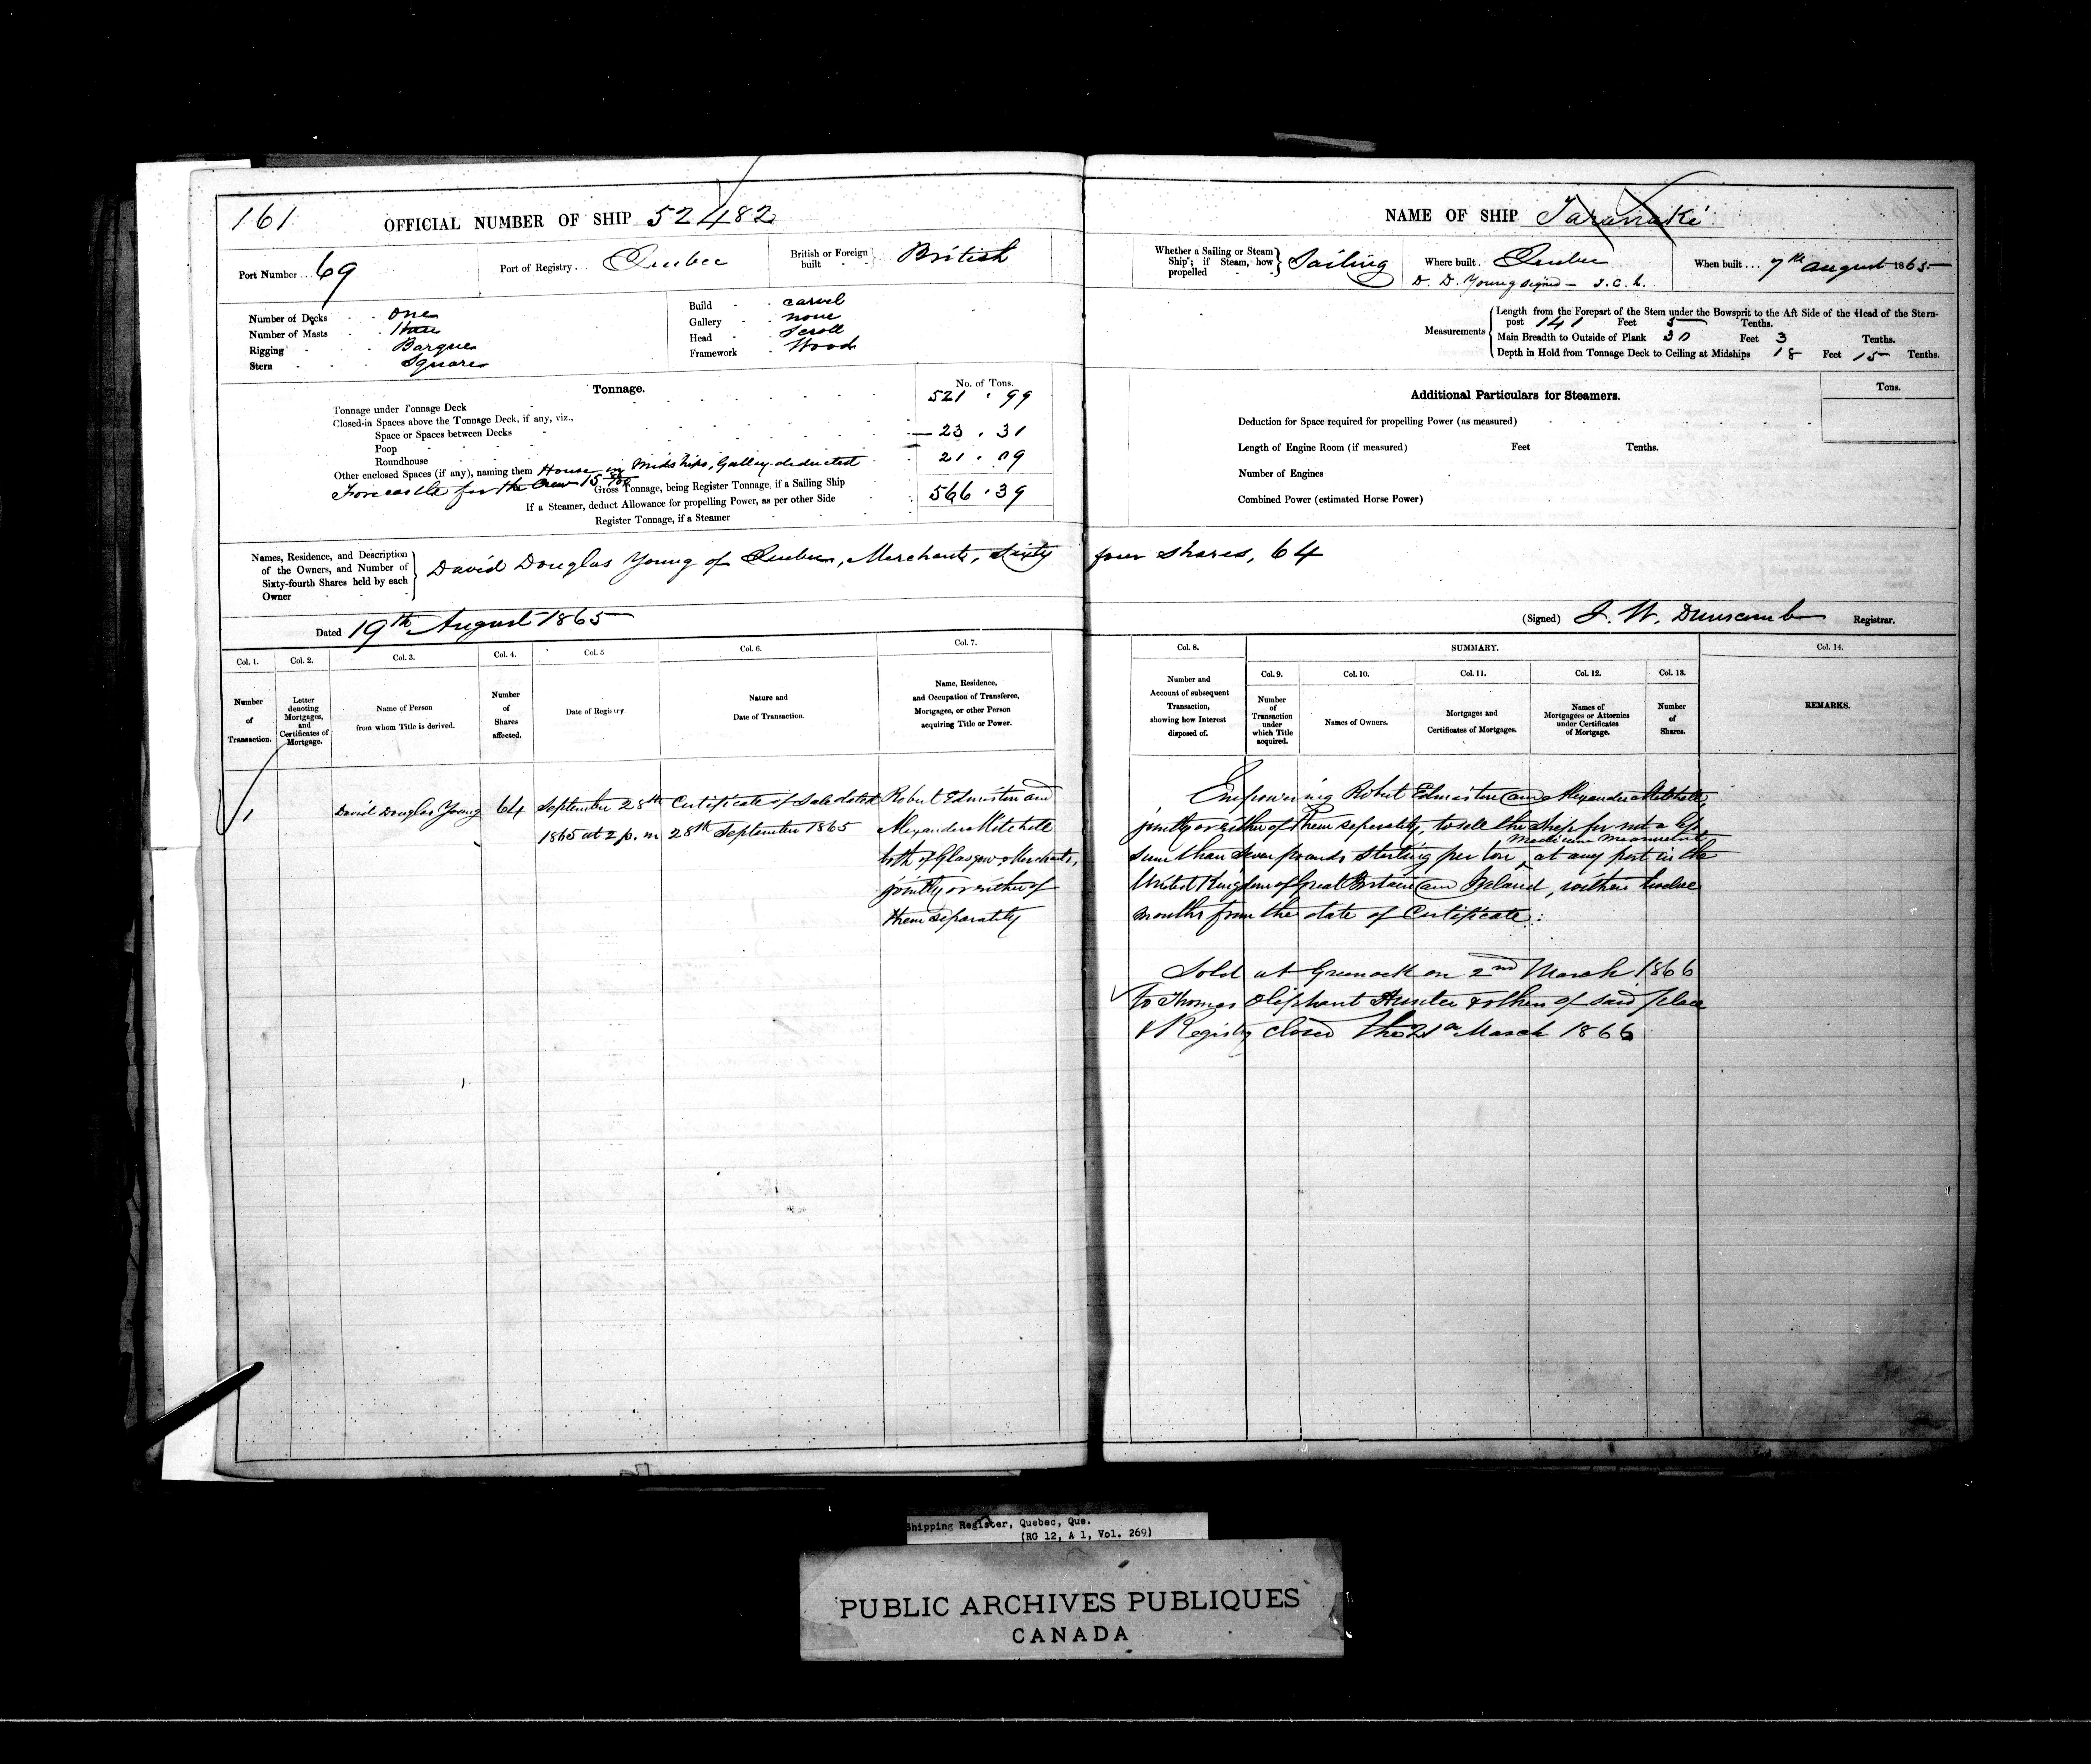 161 OFFICIAL NUMBER OF SHIP 52482
Port Number... 69 Port of Registry... Quebec British or Foreign built British
Number of Decks One
Number of Masts three
Rigging Barque
Stern Square
Build carvel
Gallery none
Head Scroll
Framework Wood
Tonnage. No. of Tons.
Tonnage under Tonnage Deck 521.99
Closed-in Spaces above the Tonnage Deck, if any, viz.,
Space or Spaces between Decks
Poop 23.31
Roundhouse
Other enclosed Spaces (if any), naming them House in Midships, Galley deducted 21.09
Forecastle for the Crew 15
Gross Tonnage, being Register Tonnage, if a Sailing Ship 566.39
If a Steamer, deduct Allowance for propelling Power, as per other Side
Register Tonnage, if a Steamer
Names, Residence, and Description of the Owners, and Number of Sixty-fourth Shares held by each Owner
David Douglas Young of Quebec, Merchant, Sixty
Dated 19th August 1865
Col. 1. Col. 2. Col. 3. Col. 4. Col. 5 Col. 6. Col. 7.
Number of Transaction.
Letter denoting Mortgages, and Certificates of Mortgage.
Name of Person from whom Title is derived.
Number of Shares affected.
Date of Registry.
Nature and Date of Transaction.
Name, Residence, and Occupation of Transferee, Mortgagee, or other Person acquiring Title or Power.
1 David Douglas Young 64 September 28th Certificate of Sale dated Robert Edmiston and
1865 at 2 p.m 28th September 1865 Alexander Mitchell
both of Glasgow Merchants,
jointly or either of
them seperatily
NAME OF SHIP Taranaki
Whether a Sailing or Steam Ship; if Steam, how propelled Sailing
Where built. Quebec
D. D. Young signed
When built... 7th August 1865
Measurements
Length from the Forepart of the Stem under the Bowsprit to the Aft Side of the Head of the Stern-
post 141 Feet 5 Tenths.
Main Breadth to Outside of Plank 30 Feet 3 Tenths.
Depth in Hold from Tonnage Deck to Ceiling at Midships 18 Feet 15 Tenths.
Additional Particulars for Steamers. Tons.
Deduction for Space required for propelling Power (as measured)
Length of Engine Room (if measured) Feet Tenths.
Number of Engines
Combined Power (estimated Horse Power)
four shares, 64
(Signed) J. W. Dunscomb Registrar.
Col. 8. SUMMARY. Col. 14.
Col. 9. Col. 10. Col. 11. Col. 12. Col. 13.
Number and Account of subsequent Transaction, showing how Interest disposed of.
Number of Transaction under which Title acquired.
Names of Owners.
Mortgages and Certificates of Mortgages.
Names of Mortgagees or Attornies under Certificates of Mortgage.
Number of Shares.
REMARKS.
Empowering Robert Edmiston and Alexander Mitchell,
jointly or either of them seperatily, to sell the Ship for not a less
sum than Seven pounds sterling per ton, at any port in the
United Kingdom of Great Britain and Ireland, within twelve
months from the date of Certificate:
Sold at Greenock on 2nd March 1866
to Thomas Oliphant Hunter & others of said place
& Registry closed the 21st March 1866
Shipping Register, Quebec, Que.
(RG 12, A 1, Vol. 269)
PUBLIC ARCHIVES PUBLIQUES
CANADA